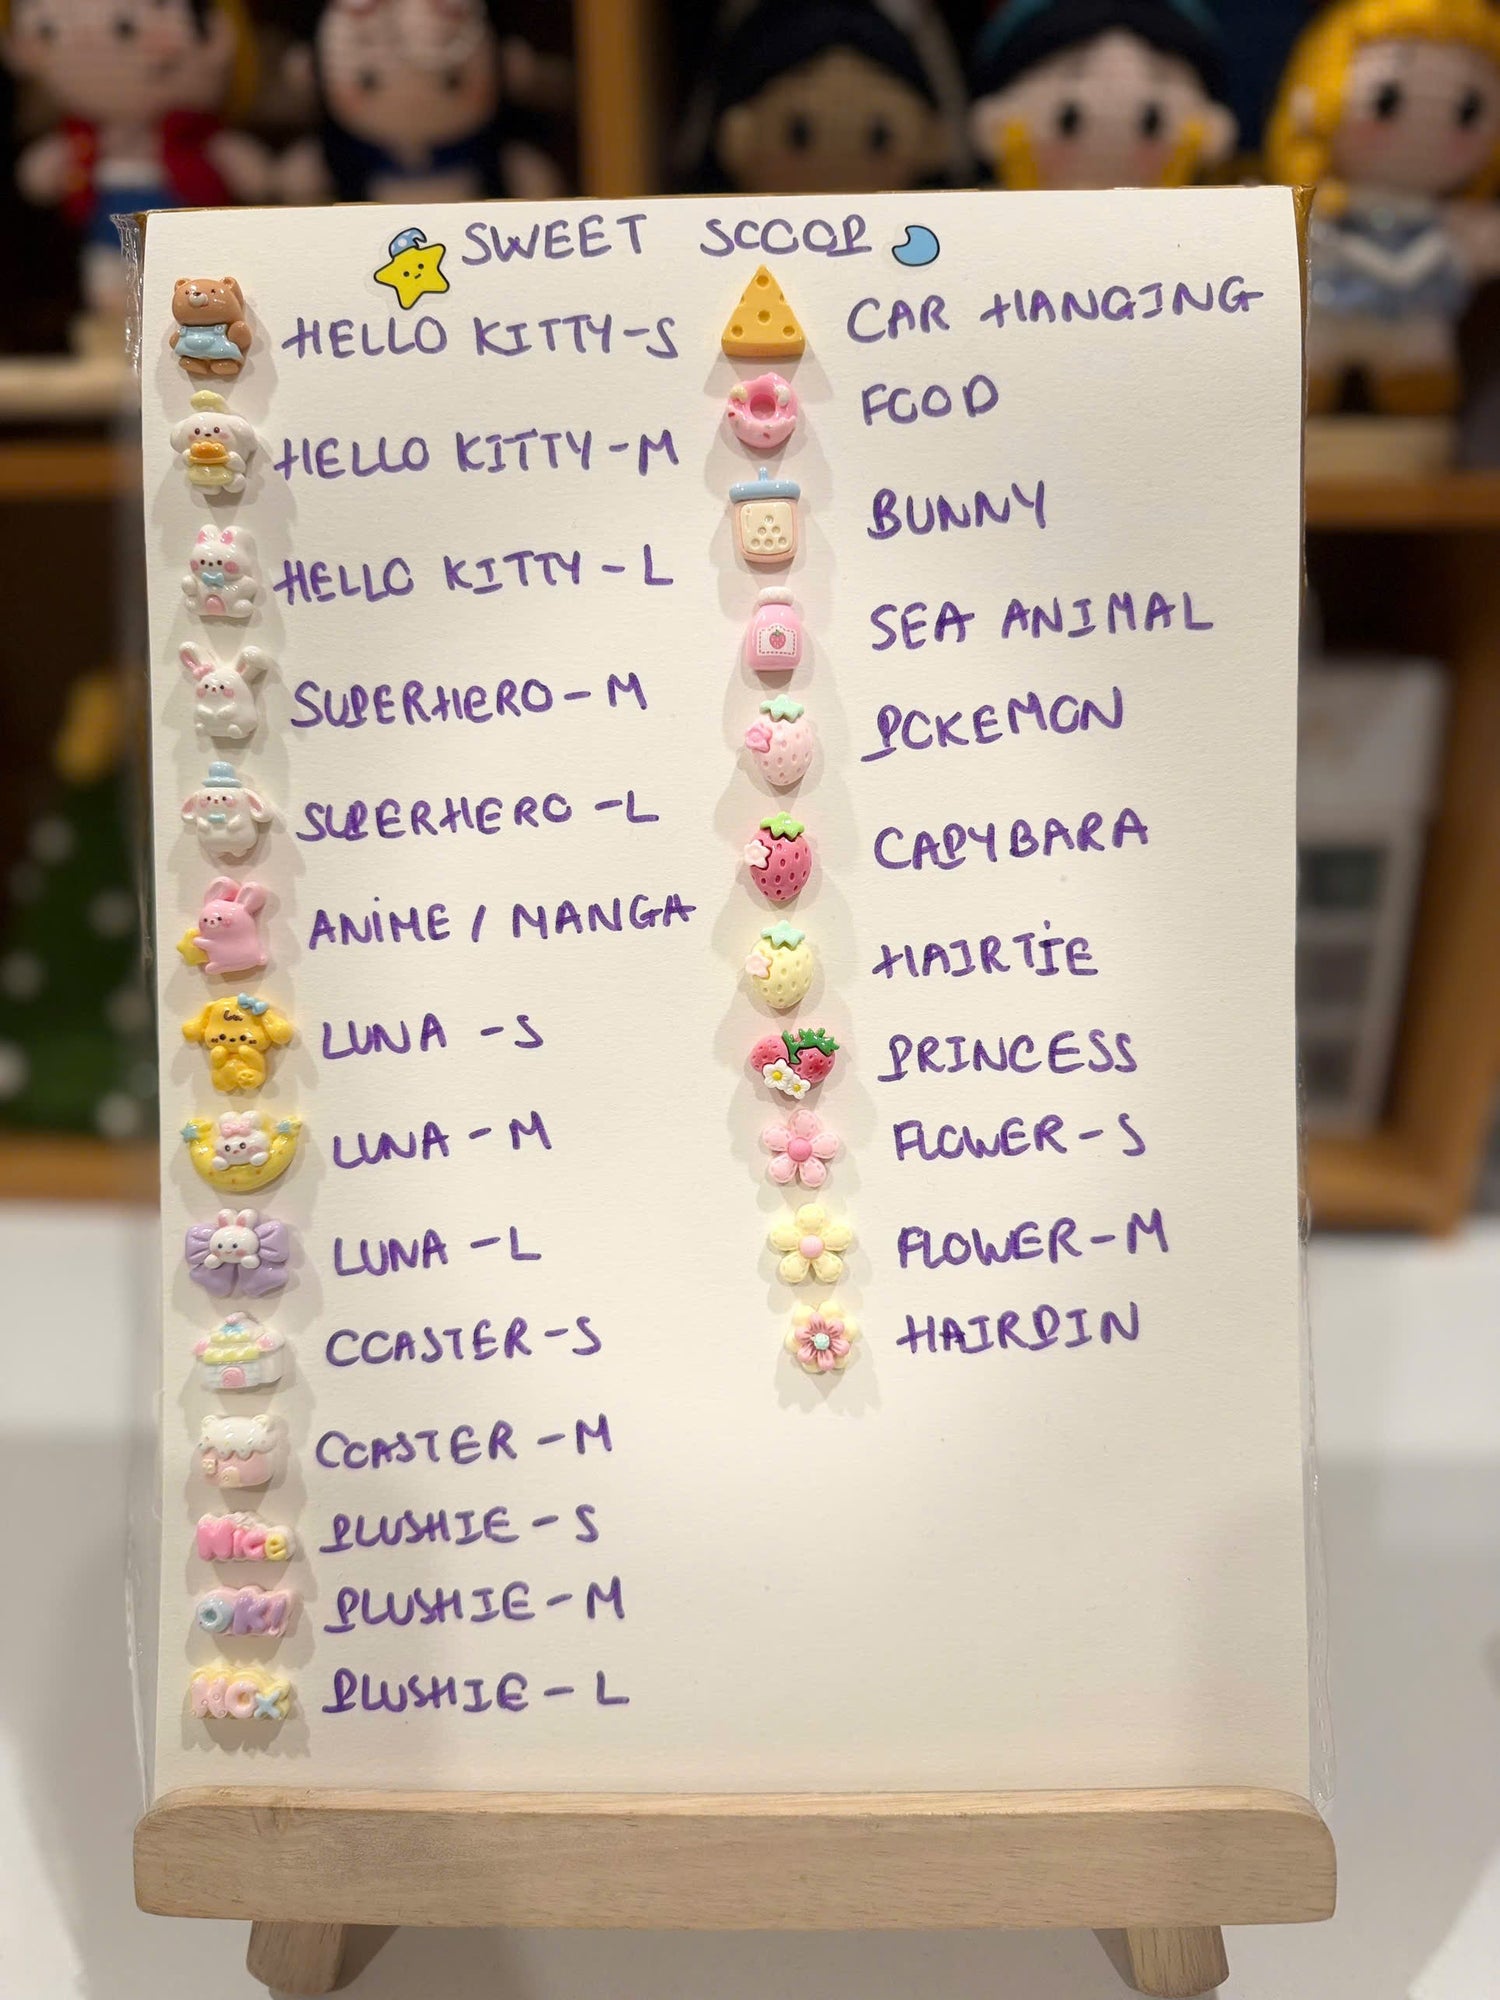 SWEET SCOOP
HELLO KITTY-S
HELLO KITTY-M
HELLO KITTY-L
SUPERHERO-M
SUPERHERO-L
ANIME / MANGA
LUNA -S
LUNA -M
LUNA -L
COASTER-S
COASTER-M
Nice PLUSHIE-S
OK! PLUSHIE-M
NOx PLUSHIE-L
CAR HANGING
FOOD
BUNNY
SEA ANIMAL
POKEMON
CAPYBARA
HAIRTIE
PRINCESS
FLOWER-S
FLOWER-M
HAIRPIN